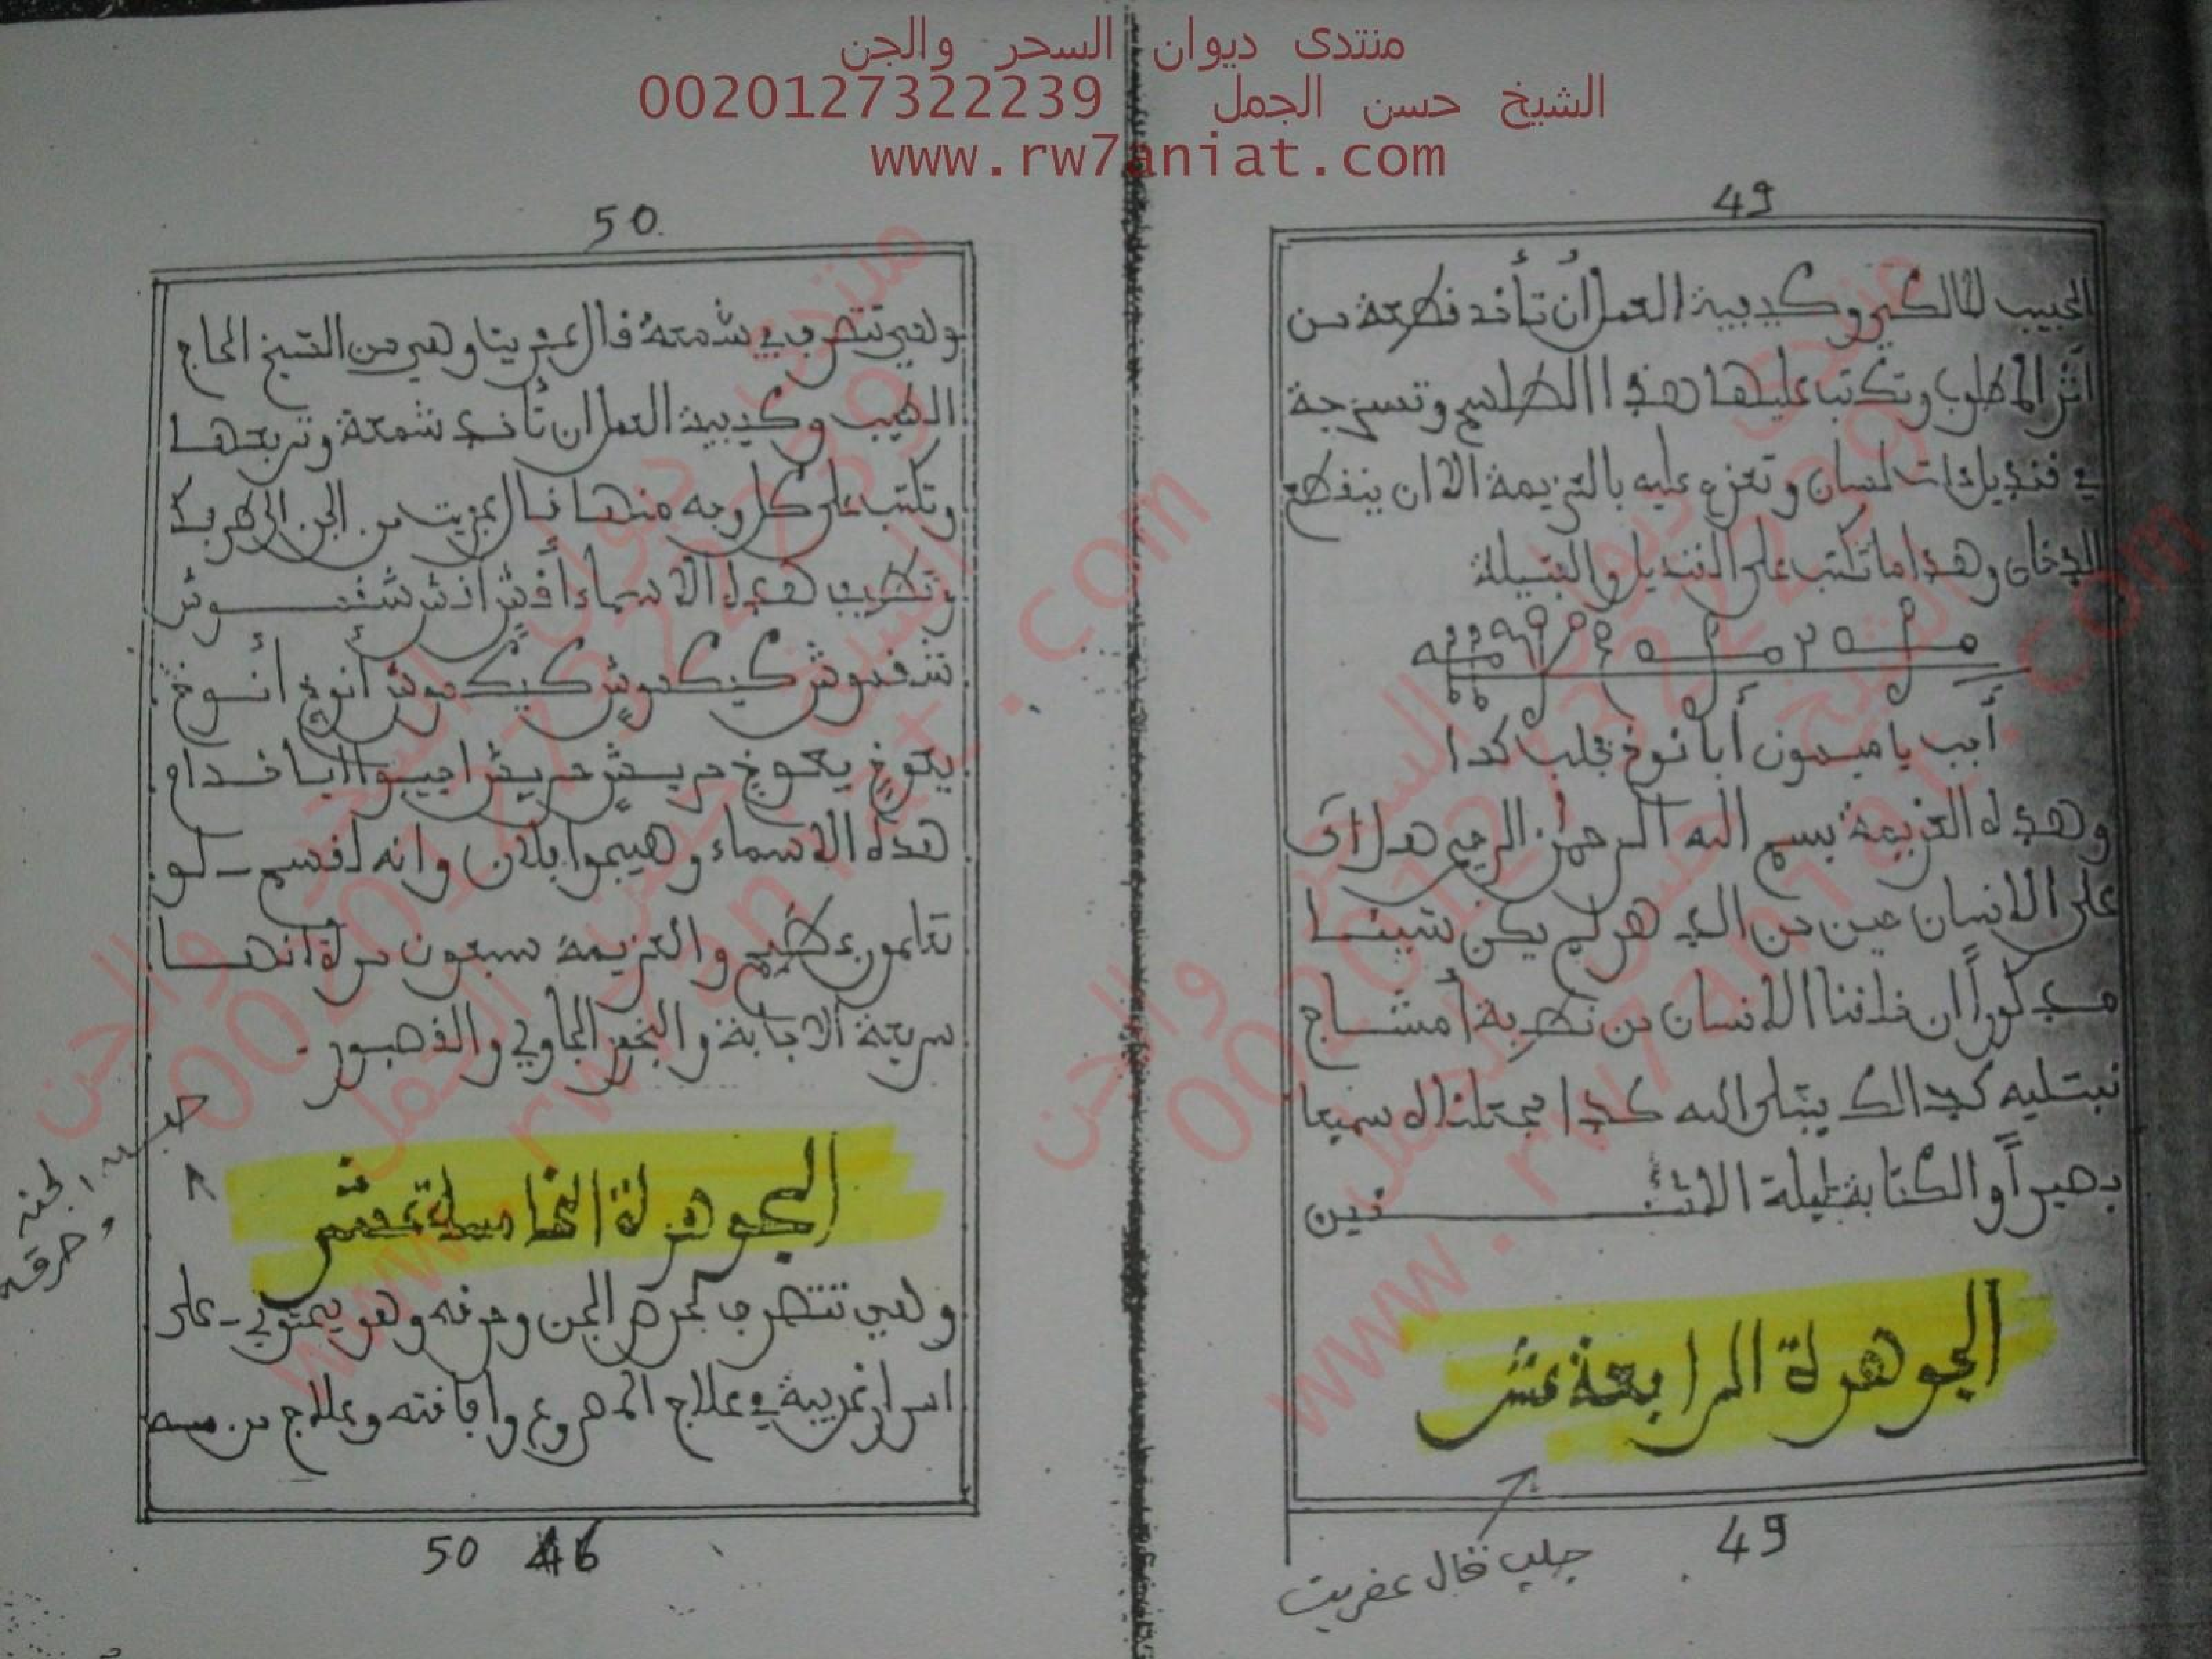 منتدى ديوان السحر والجن
الشيخ حسن الجمل 0020127322239
www.rw7aniat.com
49
الحبيب المالكي وكيفية العمل أن تأخذ قطعة من
أثر المطلوب وتكتب عليها هذا الطلسم وتسرجه
في قنديل ذات لسان وتعزم عليه بالعزيمة الا ان ينقطع
الدخان وهذا ما تكتب على القنديل والفتيلة
أجب يا ميمون أبا نوخ بجلب كذا
وهذه العزيمة بسم الله الرحمان الرحيم هل اتى
على الانسان حين من الدهر لم يكن شيئا
مذكوراً ان خلقنا الانسان من نطفة أمشاج
نبتليه كذالك يبتلى الله كذا فجعلناه سميعا
بصيراً والكتابة ليلة الاثنين
الجوهرة الرابعة عشر
جلب قال عفريت
49
50
وهي تتصرف في شمعة قال عفريت وهي من الشيخ الحاج
الطيب وكيفية العمل ان تأخذ شمعة وتربعها
وتكتب على كل وجه منها قال عفريت من الجن الى طرفك
وتضيف هذه الاسماء أقش اقش شقموش
شقموش كيكموش كيكموش أنوخ أنوخ
يعوخ يعوخ مريعش مريعش اجيبوا يا خدام
هذه الاسماء وهيجوا بلان وانه لقسم لو
تعلمون عظيم والعزيمة سبعون مرة انها
سريعة الاجابة والبخور الجاوي والقصبور
الجوهرة الخامسة عشر
وهي تتصرف لصرع الجن وحرقه وهو يحتوي على
اسرار غريبة في علاج المصروع وافاقته وعلاج من مسه
50 46
وحرقه